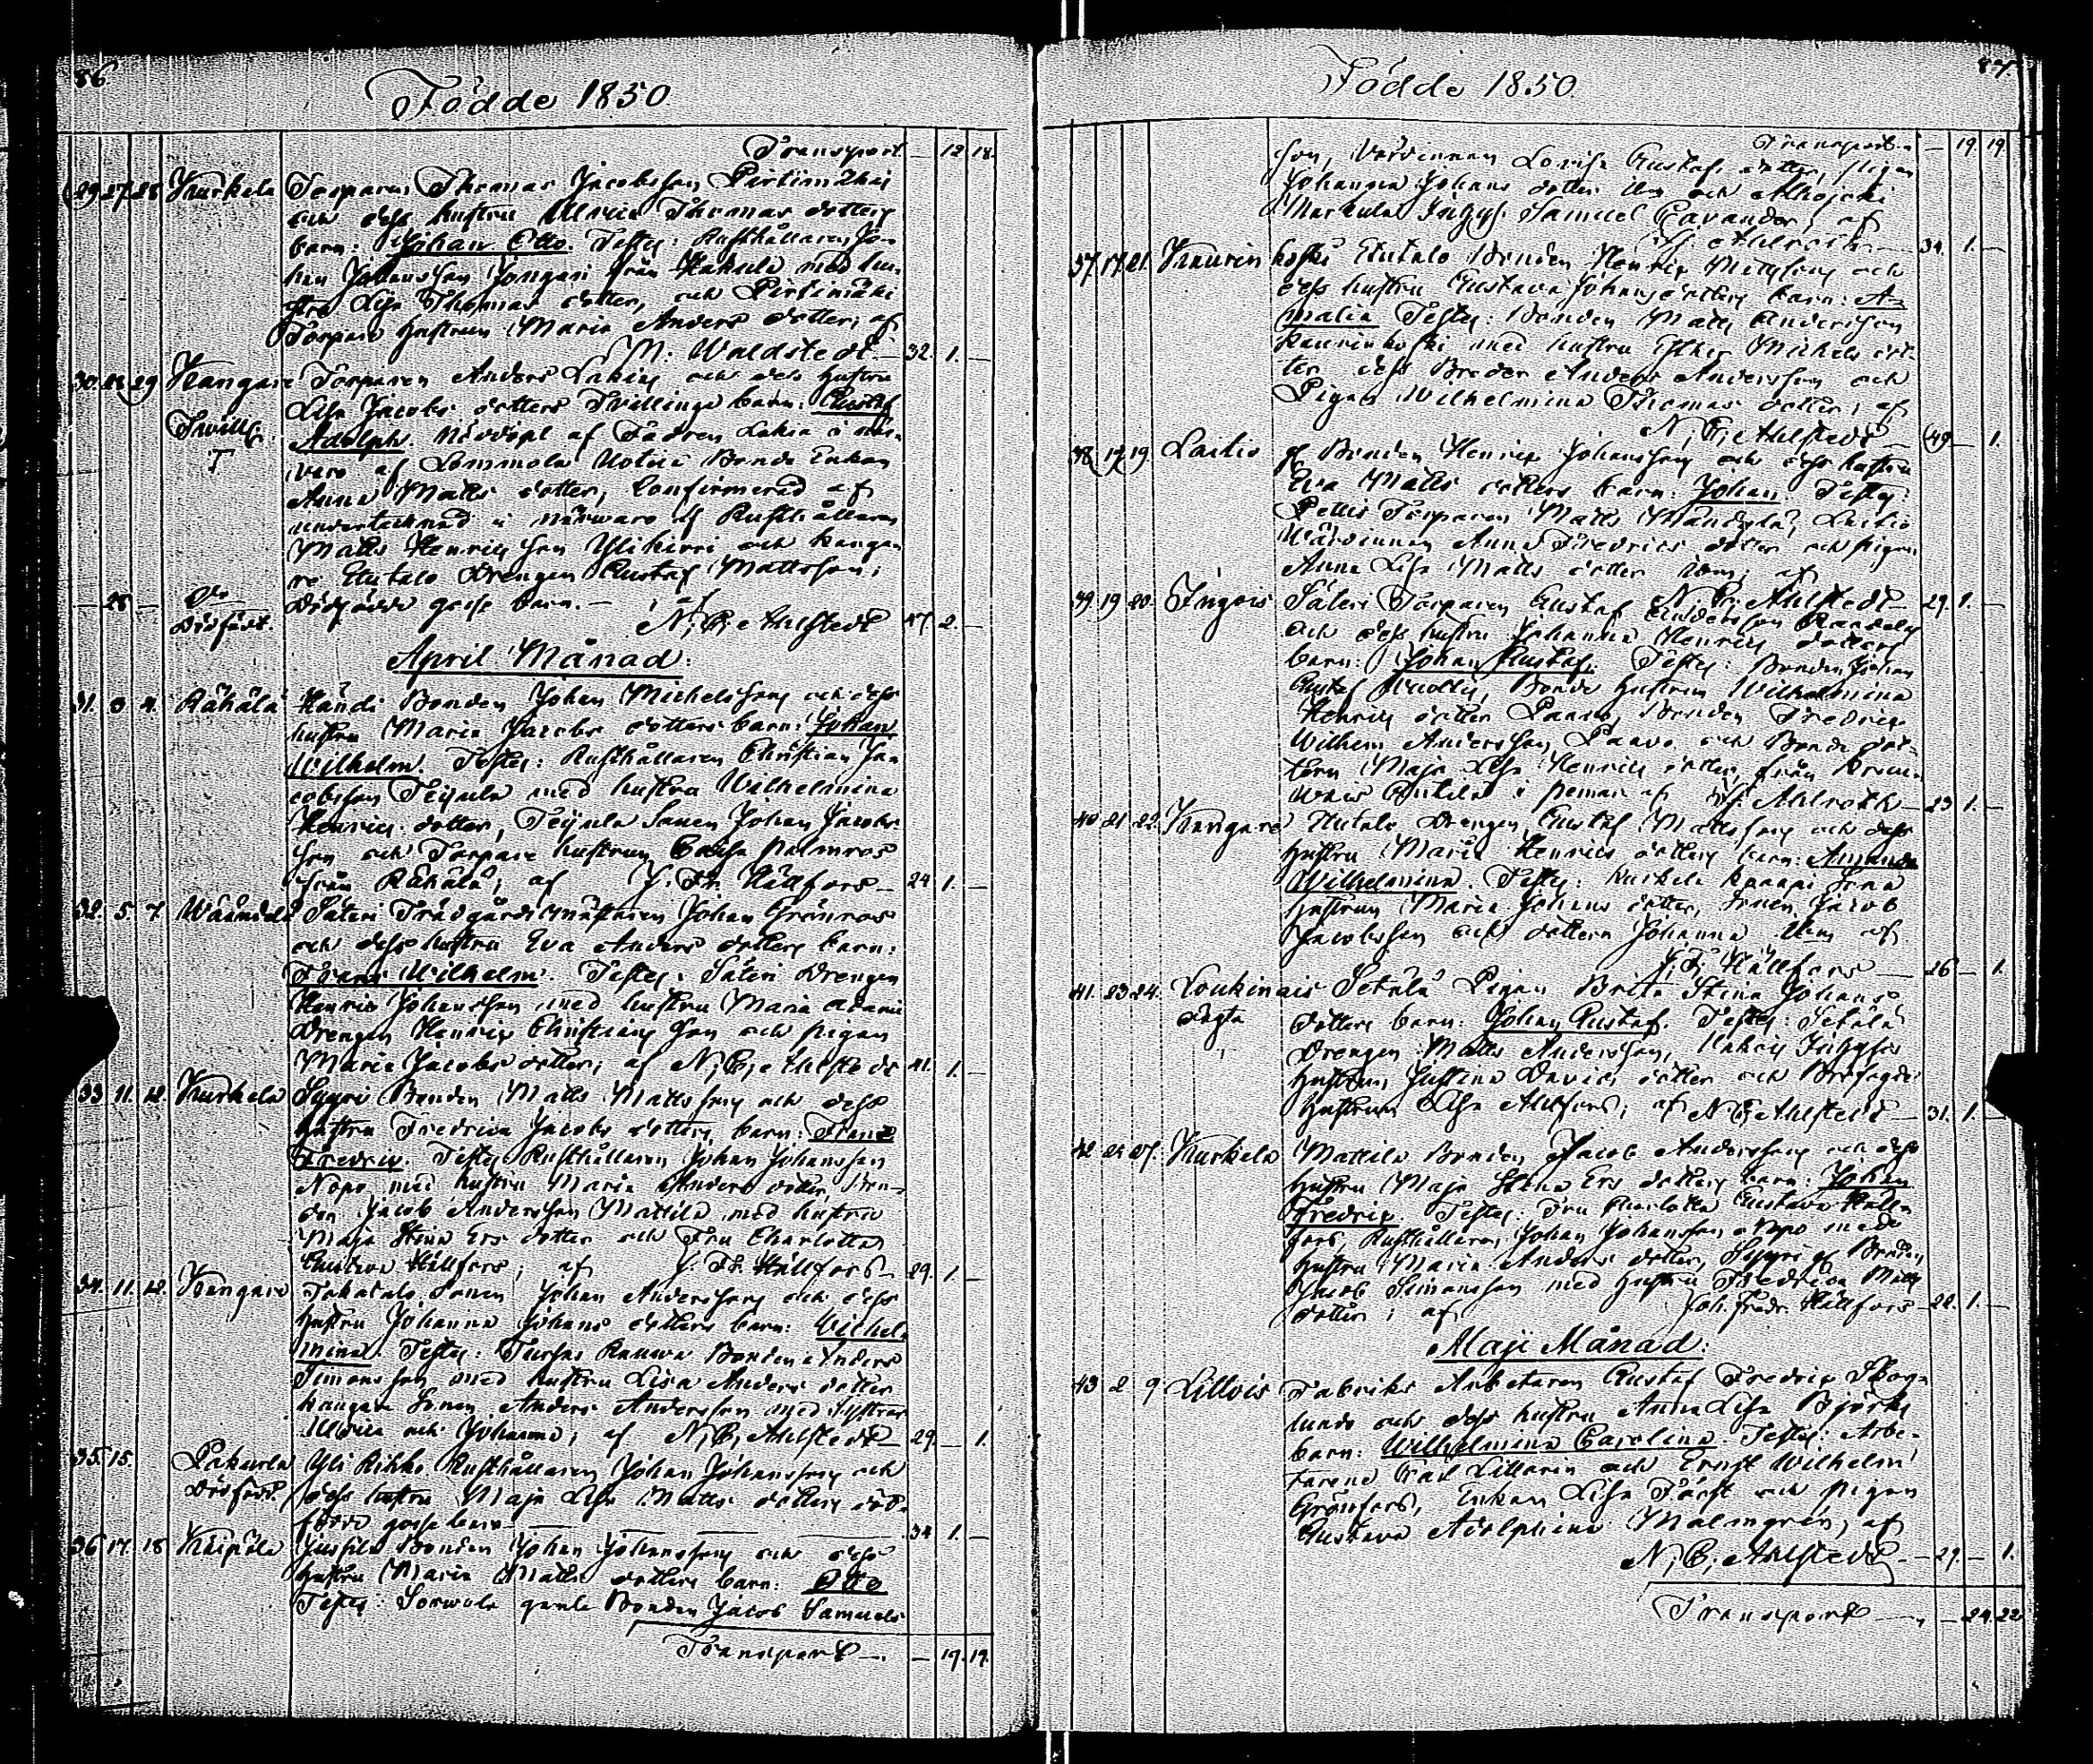 86
Födde 1850.
Transport — 12 18.
29 27 28 Kurkela Torparen Thomas Jacobsson Pirtimäki
och dess hustru Ulrica Thomas dotters
barn: Johan Otto. Testes: Rusthållaren Jo-
han Johansson Jongari från Hakula med hu-
stru Lisa Thomas dotter, och Pirtimäki
Torpare hustrun Maria Anders dotter; af
M: Waldstedt — 32. 1. —
30. 28 29 Kangare Torparen Anders Lakia och dess hustru
Lisa Jacobs dotters Tvillinge barn: Gustaf
Twill:
Adolph. Nöddöpt af Fadren Lakia i när-
varo af Lammola Uotila Bonde Enkan
Anna Matts dotter, Confirmerad af
undertecknad i närwaro af Rusthållaren
Matts Henricsson Ylikirri och Kanga-
re Uutalo Drengen Gustaf Mattsson;
— 28 — Do Dödfödt. Dödfödde gosse barn. — af
N. G. Ahlstedt 47. 2. —
April Månad:
31. 3 4. Rähälä Händi Bonden Johan Michelsson och dess
hustru Maria Jacobs dotters barn: Johan
Wilhelm. Testes: Rusthållaren Christian Ja-
cobsson Teijula med hustru Wilhelmina
Henrics dotter, Teijula Sonen Johan Jacobs-
son och Torpare hustrun Caisa Palmros
från Rähälä; af J. Fr. Hällfors — 24 1. —
32. 5. 7. Säteri Trädgårdsmästaren Johan Grönroos
och dess hustru Eva Anders dotters barn:
Frans Wilhelm. Testes: Säteri Drengen
Henric Johansson med hustru Maria Adami
Drengen Henric Christians son och pigan
Maria Jacobs dotter; af N. G. Ahlstedt 41. 1. —
33 11. 12. Kurkela Syyri Bonden Matts Mattsson och dess
hustru Fredrica Jacobs dotters barn: Franz
Fredric. Testes Rusthållaren Johan Johansson
Nopo med hustru Maria Anders dotter, Bon-
den Jacob Andersson Mattila med hustru
Maja Stina Ers dotter och Fru Charlotta
Gustava Hällfors; af J. Fr. Hällfors — 29. 1. —
34. 11. 12. Kangare Takatalo Sonen Johan Andersson och dess
hustru Johanna Johans dotters barn: Wilhel-
mina. Testes: Bonden Anders
Simonsson med hustru Lisa Anders dotter
Kangare Sonen Anders Andersson med systrar
Ulrica och Johanna; af N. G. Ahlstedt — 29. — 1.
35. 15. Pakurla Yli Kikko Rusthållaren Johan Johansson och
Dödfödt. dess hustru Maja Lisa Matts dotters död-
födde gosse barn — 34 1. —
36 17. 18 Kaipila Jussila Bonden Johan Johansson och dess
hustru Maria Matts dotters barn: Otto
Testes: Sorwala gamla Bonden Jacob Samuels
Transport — — 19. 19.
87.
Födde 1850.
Transport — — 19 19.
son, Värdinnan Lovisa Gustafs dotter, pigan
Johanna Johans dotter ibm och Alhojoki
Markula Inhys: Samuel Cavander; af
Ahlroth — 34. 1. —
37. 17. 21. Kaurinkoski Uutalo Bonden Henric Mattsson och
dess hustru Gustava Johans dotters barn: A-
malia Testes: Bonden Matts Andersson
Kaurinkoski med hustru Esther Michels dot-
ter dess Broder Anders Andersson och
Pigan Wilhelmina Thomas dotter; af
N. G. Ahlstedt — 49 — 1.
38. 17. 19. Laitio Bonden Henric Johansson och dess hustru
Eva Matts dotters barn: Johan. Testes:
Torparen Matts Laitio
Wärdinnan Anna Fredrics dotter och pigan
Anna Lisa Matts dotter ibm; af
N. G. Ahlstedt — 29. 1. —
39. 19 20. Ingois Säteri Torparen Gustaf Andersson
och dess hustru Johanna Henrics dotters
barn: Johan Gustaf. Testes: Bonden Johan
Gustaf Bonde hustrun Wilhelmina
Henrics dotter Paavo, Bonden Fredric
Wilhelm Andersson Paavo och Bonde dot-
tern Maja Lisa Henrics dotter, från
i Pemar; af Ahlroth — 23 1. —
40 21 22. Kangare Uutalo Drengen Gustaf Mattsson och dess
hustru Maria Henrics dotters barn: Amanda
Wilhelmina. Testes: Kurkela
hustrun Maria Johans dotter, Sonen Jacob
Jacobsson och dottern Johanna ibm; af
J. F. Hällfors — 26 — 1.
41. 23 24. Loukinais Setälä Pigan Brita Stina Johans
Oägta dotters barn: Johan Gustaf. Testes: Setälä
Drengen Matts Andersson, Inhyses
hustrun Justina Davids dotter och
hustrun Lisa Ahlfors; af N. G. Ahlstedt — 31. 1. —
42 24 27. Kurkela Mattila Bonden Jacob Andersson och dess
hustru Maja Stina Ers dotters barn: Johan
Fredric. Testes: Fru Charlotta Gustava Häll-
fors, Rusthållaren Johan Johansson Nopo med
hustru Maria Anders dotter, Syyri gl Bonden
Jacob Simonsson med hustru Fredrica Matts
dotter; af Joh. Fredr. Hällfors — 22. 1. —
Maji Månad:
43 2 9 Littois Fabriks Arbetaren Gustaf Fredric Skog-
lund och dess hustru Anna Lisa Björks
barn: Wilhelmina Carolina Testes: Arbe-
tarene Carl Littorin och Ernst Wilhelm
Grönfors, Enkan Lisa Färst och pigan
Gustava Adolphina Malmgrén; af
N. G. Ahlstedt — 29. — 1.
Transport — — 24 22